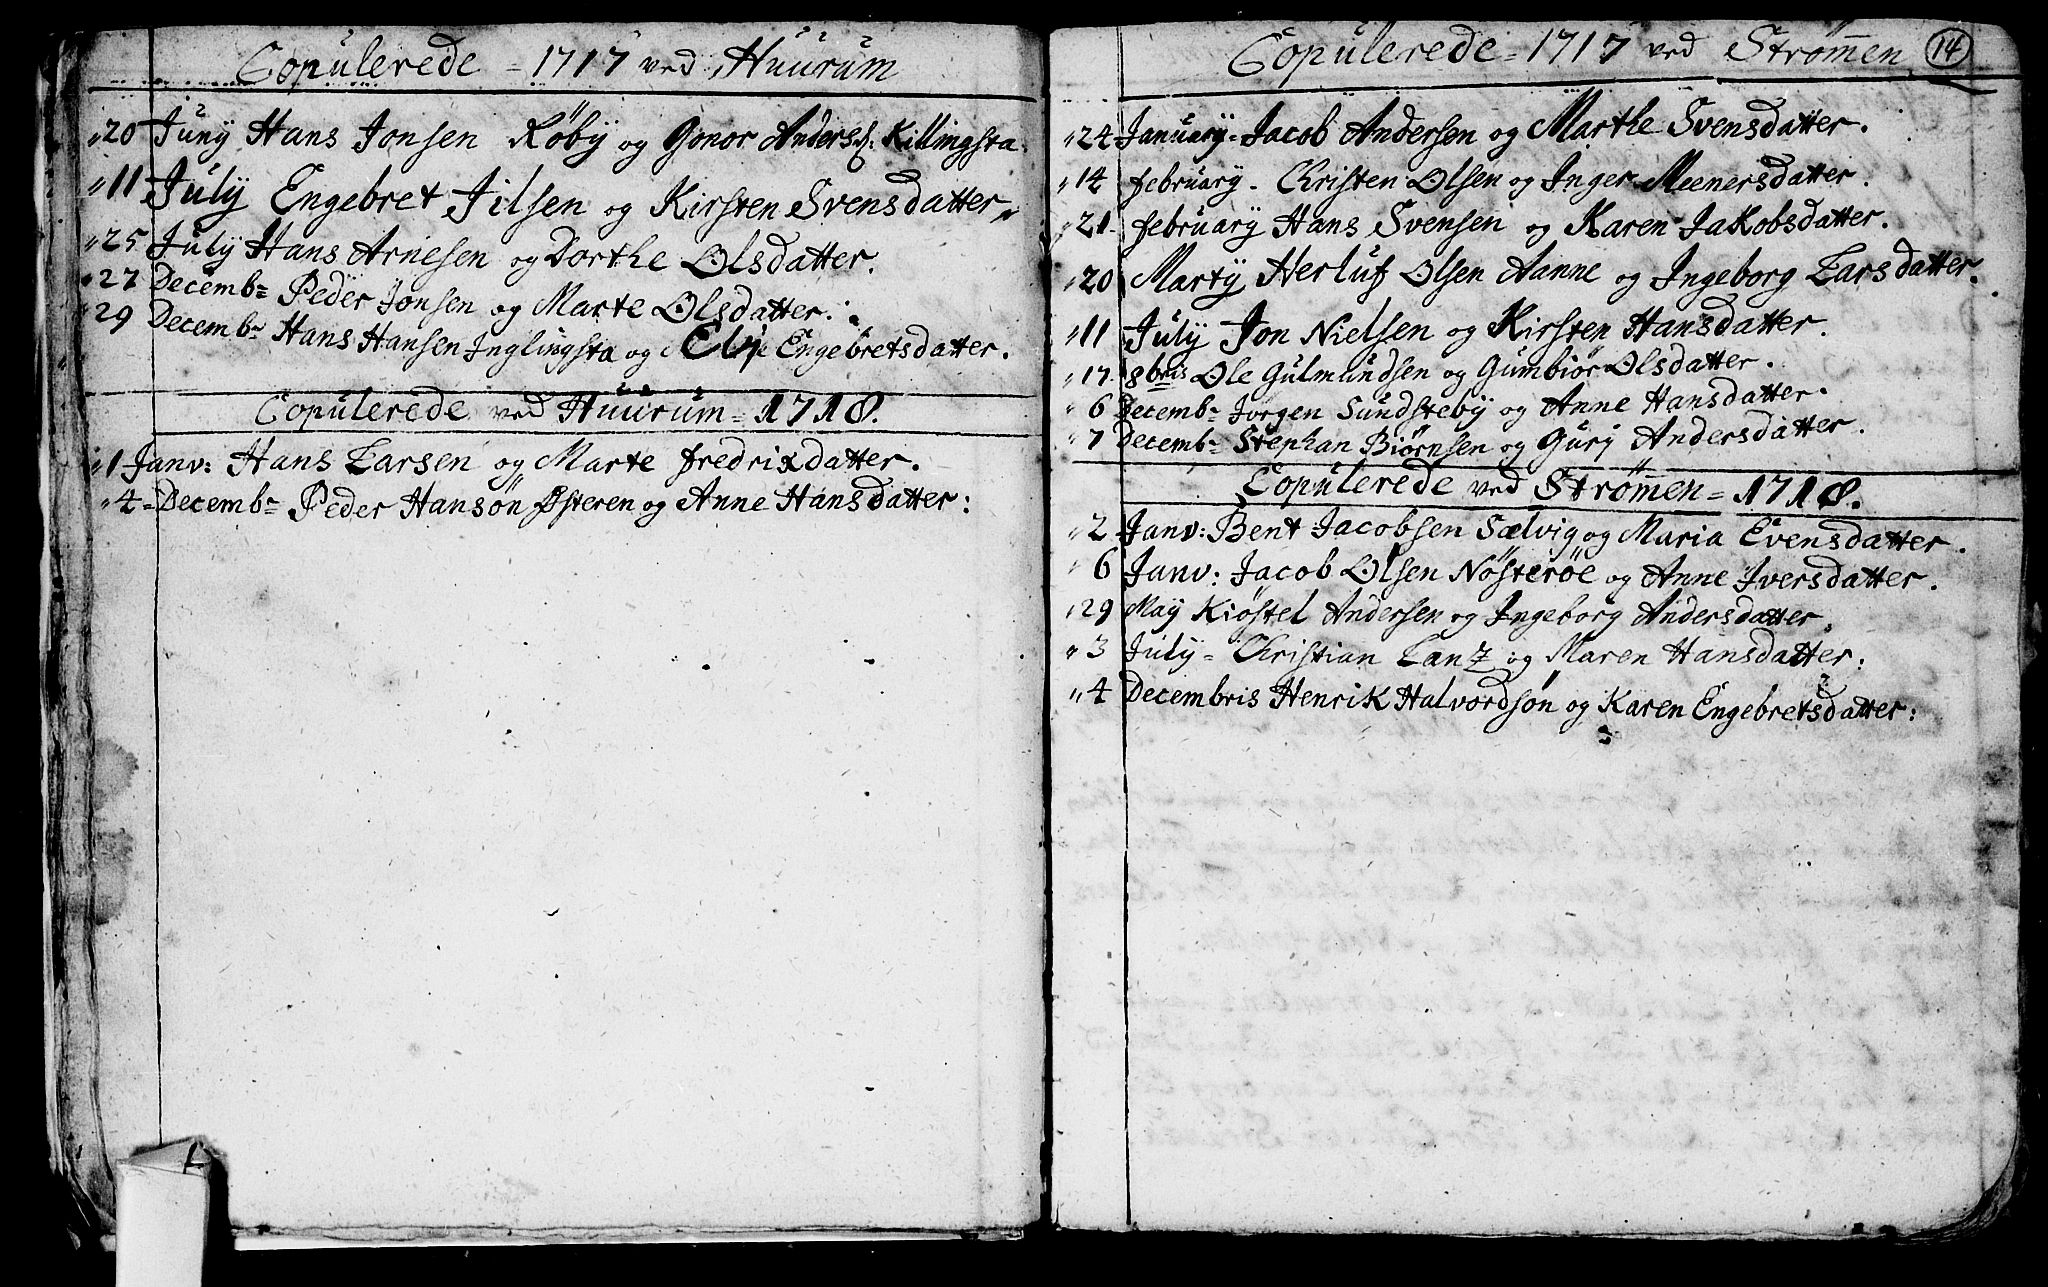 Copulerede = 1717 ved Huurum
20 Juny Hans Jonsen Røby og Gonor Anders d: Killingsta.
11 July Engebret Jilsen og Kirsten Svensdatter
25 July Hans Arnesen og Dorthe Olsdatter.
27 Decemb= Peder Jonsen og Marte Olsdatter.
29 Decemb= Hans Hansen Inglingsta og Engebretsdatter.
Copulerede ved Huurum = 1718.
1 Janv: Hans Larsen og Marte fredrixdatter.
4 = Decemb= Peder Hansøn Østeren og Anne Hansdatter:
Copulerede = 1717 ved Strømen 14
24 January = Jacob Andersen og Marthe Svensdatter.
14 february. Christen Olsen og Inger Meenersdatter.
21. february Hans Svensen og Karen Jakobsdatter.
20 Marty Herluf Olsen Aanne og Ingeborg Larsdatter.
11 July Jon Nielsen og Kirsten Hansdatter.
17. 8bris Ole Gulmundsen og Gumbiør Olsdatter.
6 Decemb= Jørgen Sundsteby og Anne Hansdatter.
7 Decemb= Stephan Biørnsen og Gurj Andersdatter.
Copulerede ved Strømen = 1718.
2 Janv: Bent Jacobsen Sælvig og Maria Evensdatter.
6 Janv: Jacob Olsen Nøsterøe og Anne Iversdatter.
29 May Kiøstel Andersen og Ingeborg Andersdatter.
3 July = Christian Lanz og Maren Hansdatter:
4 Decembris Henrik Halvordsøn og Karen Engebretsdatter: